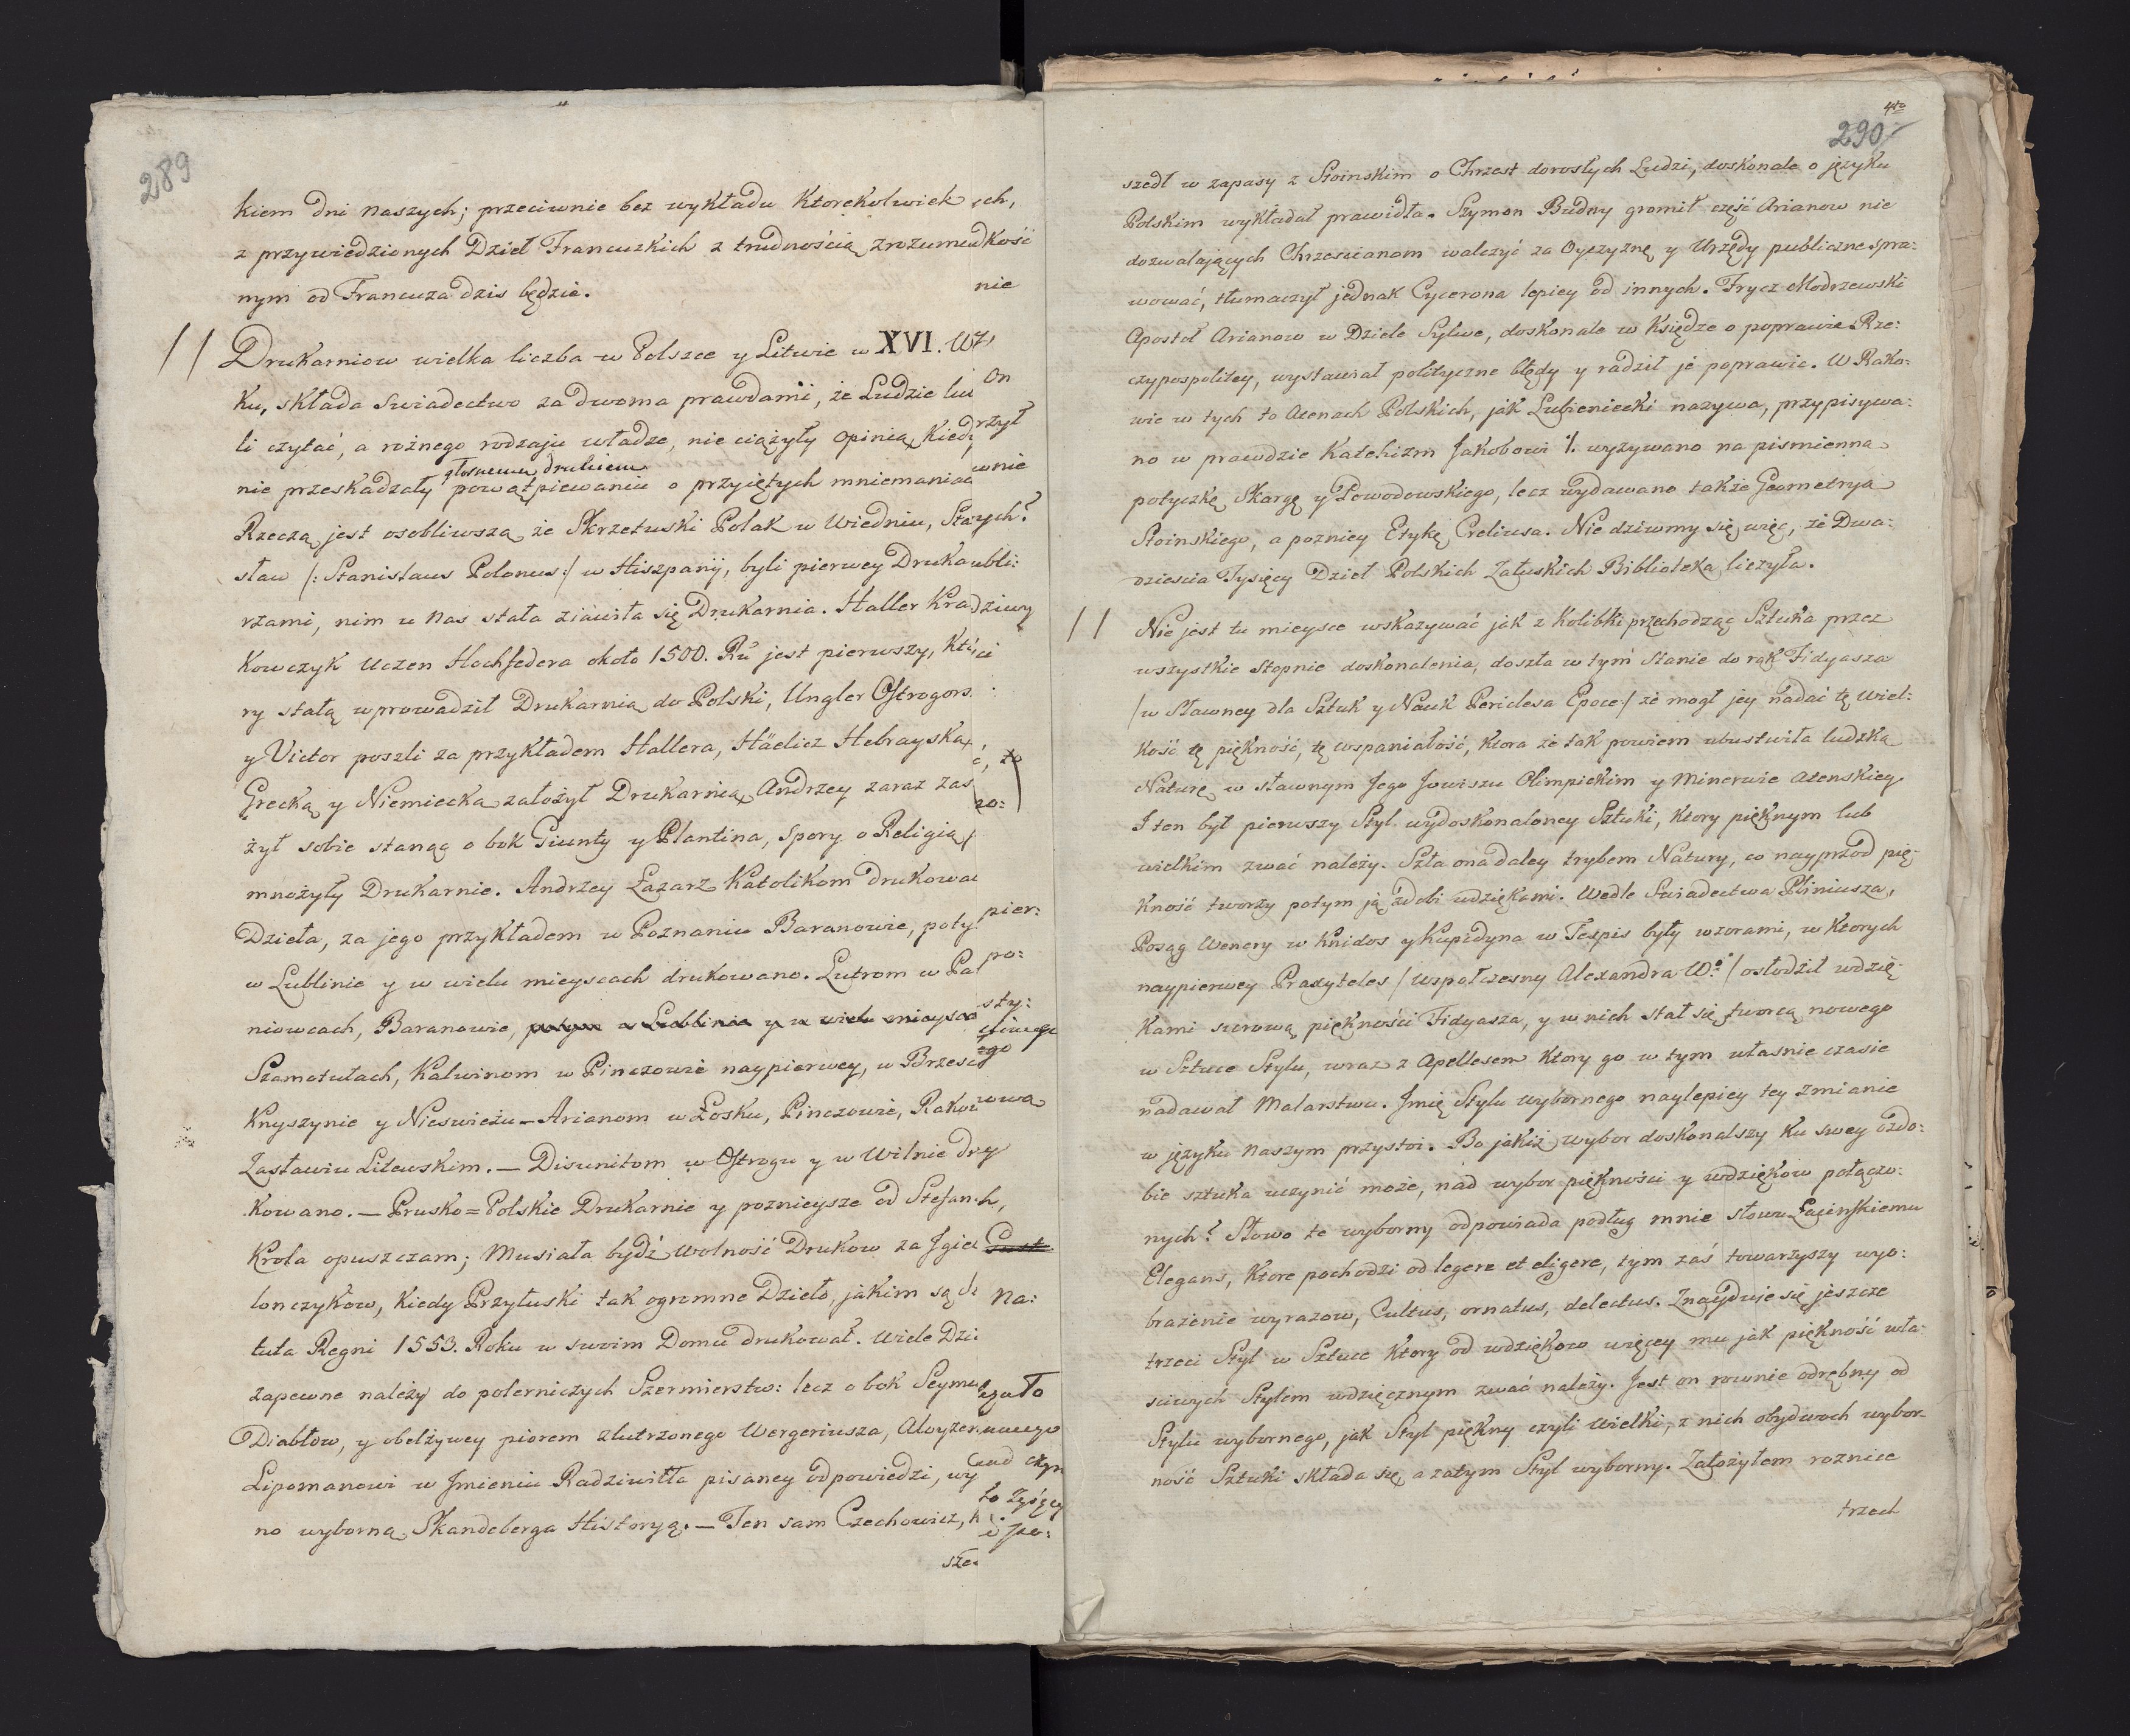 289
kiem dni naszych; przeciwnie bez wykładu Ktorekolwiek
z przywiedzionych Dzieł Francuzkich z trudnością zrozumia
nym od Francuza dzis będzie.
Drukarniow wielka liczba w Polszce y Litwie w XVI. W
Ku, składa Swiadectwo za dwoma prawdami, że Ludzie lu
li czytać, a rożnego rodzaju władze, nie ciążyły opinią, Kiedy
głosnemu drukiem
nie przeskadzały powątpiewaniu o przyiętych mniemania
Rzeczą jest osobliwszą że Skrzetuski Polak w Wiedniu, Sta
sław /: Stanislaus Polonus :/ w Hiszpanij, byli pierwey Druka
rzami, nim u nas stała ziawiła się Drukarnia. Haller Kra
Kowczyk Uczen Hochfedera około 1500. Ru jest pierwszy, Któ
ry stałą wprowadził Drukarnią do Polski, Ungler Ostrogors
y Victor poszli za przykładem Hallera, Häelicz Hebrayską,
Grecką y Niemiecką założył Drukarnią, Andrzey zaraz zas
żył sobie stanąć o bok Giunty y Plantina, spory o Religią
mnożyły Drukarnie. Andrzey Łazarz Katolikom drukowa
Dzieła, za jego przykładem w Poznaniu Baranowie, poty
w Lublinie y w wielu mieyscach drukowano. Lutrom w Pa
niowcach, Baranowie, potym w Lublinie y w wielu mieysca
Szamotułach, Kalwinom w Pinczowie naypierwey, w Brzesc
Knyszynie y Nieswieżu – Arianom w Łosku, Pinczowie, Rako
Zasławiu Litewskim. – Disunitom w Ostrogu y w Wilnie dr
Kowano. – Prusko=Polskie Drukarnie y poznieysze od Stefan
Krola opuszczam; Musiała bydź wolność Drukow za Jgiel
lonczykow, Kiedy Przyłuski tak ogromne Dzieło, jakim są
tuta Regni 1553. Roku w swoim Domu drukował. Wiele Dzi
zapewne należy do polerniczych Szermierstw: lecz o bok Seymu
Diabłow, y obelżywey piorem zlutrzonego Wergeriusza, Aloyze
Lipomanowi w Jmieniu Radziwiłła pisaney odpowiedzi, wy
no wyborną Skandeberga Historyą. – Ten sam Czechowicz,
sze
ch,
dkość
nie
On
rzył
wnie
ych?
ubli:
dziwy
pier:
po:
sty:
wwa
Na:
4to
290
szedł w zapasy z Stoinskim o Chrzest dorosłych Ludzi, doskonale o języku
Polskim wykładał prawidła. Szymon Budny gromił część Arianow nie
dozwalających Chrzescianom walczyć za Oyczyznę y Urzędy publiczne spra:
wować, tłumaczył jednak Cycerona lepiey od innych. Frycz Modrzewski
Apostoł Arianow w Dziele Sylwe, doskonale w Księdze o poprawie Rze:
czypospolitey, wystawiał polityczne błędy y radził je poprawic. W Rako:
wie w tych to Atenach Polskich, jak Lubieniecki nazywa, przypisywa:
no w prawdzie Katehizm Jakobowi I. wyzywano na pismienna
potyczkę Skargę y Powodowskiego, lecz wydawano także Geometryą
Stoinskiego, a pozniey Etykę Creliusa. Nie dziwmy się więc, że Dwa:
dziescia Tysięcy Dzieł Polskich Załuskich Biblioteka liczyła.
Nie jest tu mieysce wskazywać jak z Kolibki przechodząc Sztuka przez
wszystkie stopnie doskonalenia, doszła w tym Stanie do rąk Fidyasza
/w Sławney dla Sztuk y Nauk Periclesa Epoce:/ że mogł jey nadać tę Wiel:
kość tę piękność, tę wspaniałość, ktora że tak powiem ubustwiła ludzką
Naturę w sławnym Jego Jowiszu Olimpickim y Minerwie Atenskiey
I ten był pierwszy Styl wydoskonaloney Sztuki, Ktory pięknym lub
wielkim zwać należy. Szła ona daley trybem Natury, co nayprzod pię:
kność tworzy potym ją zdobi wdziękami. Wedle Swiadectwa Pliniusza,
Posąg Wenery w Knidos y Kupidyna w Tespis były wzorami, w Ktorych
naypierwey Praxyteles /współczesny Alexandra Wo/ osłodził wdzię:
kami surową piękności Fidyasza, y w nich stał się tworcą nowego
w Sztuce Stylu, wraz z Apellesem Ktory go w tym własnie czasie
nadawał Malarstwu. Jmię Stylu wybornego naylepiey tey zmianie
w języku naszym przystoi. Bo jakiż wybor doskonalszy ku swey ozdo:
bie sztuka uczynić może, nad wybor piękności y wdziękow połączo:
nych? Słowo te wyborny odpowiada podług mnie słowu Łacinskiemu
Elegans, Ktore pochodzi od legere et eligere, tym zaś towarzyszy wyo:
brażenie wyrazow, Cultus, ornatus, delectus. Znayduje się jeszcze
trzeci Styl w Sztuce Ktory od wdziękow więcey mu jak piękność wła:
sciwych Stylem wdzięcznym zwać należy. Jest on rownie odrębny od
Stylu wybornego, jak Styl piękny czyli Wielki, z nich obydwoch wybor-
ność Sztuki składa się a zatym Styl wyborny. Założyłem roznice
trzech